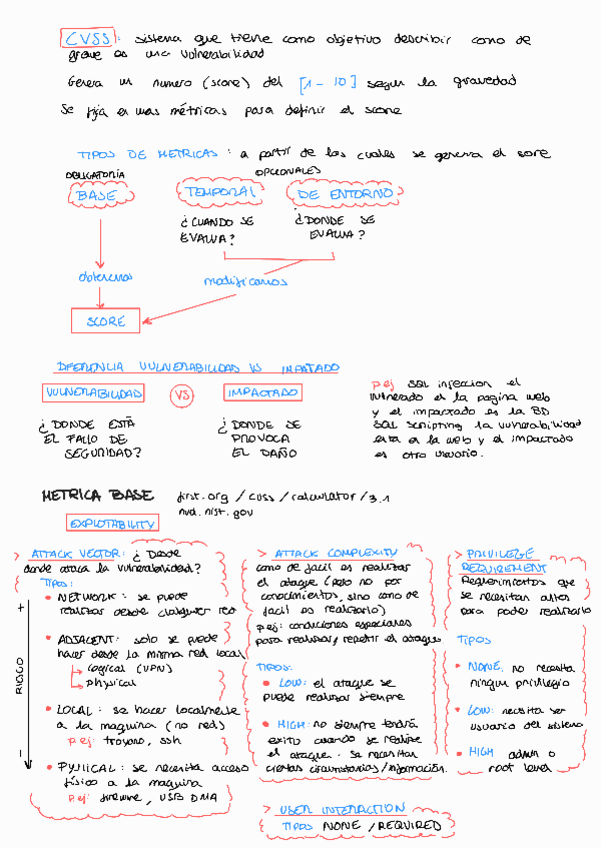 CVSS: sistema que tiene como objetivo describir como de
grave es una vulnerabilidad
Genera un numero (score) del [1 - 10] segun la gravedad
Se fija en unas métricas para definir el score
TIPOS DE METRICAS: a partir de las cuales se genera el sore
OBLIGATORIA
OPCIONALES
BASE
TEMPORAL
DE ENTORNO
¿CUANDO SE
EVALUA?
¿DONDE SE
EVALUA?
obtenemos
modificamos
SCORE
DIFERENCIA VULNERABILIDAD VS IMPATADO
VULNERABILIDAD
VS
IMPACTADO
¿DONDE ESTÁ
EL FALLO DE
SEGURIDAD?
¿DONDE SE
PROVOCA
EL DAÑO
p.ej SQL injeccion el
vulnerado es la pagina web
y el impactado es la BD
SQL scripting la vulnerabilidad
esta en la web y el impactado
es otro usuario.
METRICA BASE first.org/cvss/calculator/3.1
nvd.nist.gov
EXPLOTABILITY
> ATTACK VECTOR: ¿Desde
donde ataca la vulnerabilidad?
TIPOS:
RIESGO
+
-
• NETWORK: se puede
realizar desde cualquier red
• ADJACENT: solo se puede
hacer desde la misma red local
logical (VPN)
physical
• LOCAL: se hacer localmente
a la maquina (no red)
p.ej: troyano, ssh
• PYHICAL: se necesita acceso
físico a la maquina
p.ej: firewire, USB DMA
> ATTACK COMPLEXITY
como de facil es realizar
el ataque (pero no por
conocimientos, sino como de
facil es realizarlo)
p.ej: condiciones especiales
para realizar/repetir el ataque
TIPOS:
• LOW: el ataque se
puede realizar siempre
• HIGH: no siempre tendrá
exito cuando se realize
el ataque. Se necesitan
ciertas circunstancias/información.
> PRIVILEGE
REQUIREMENT
Requerimientos que
se necesitan antes
para poder realizarlo
TIPOS
• NONE: no necesita
ningun privilegio
• LOW: necesita ser
usuario del sistema
• HIGH admin o
root level
> USER INTERACTION
TIPOS NONE / REQUIRED